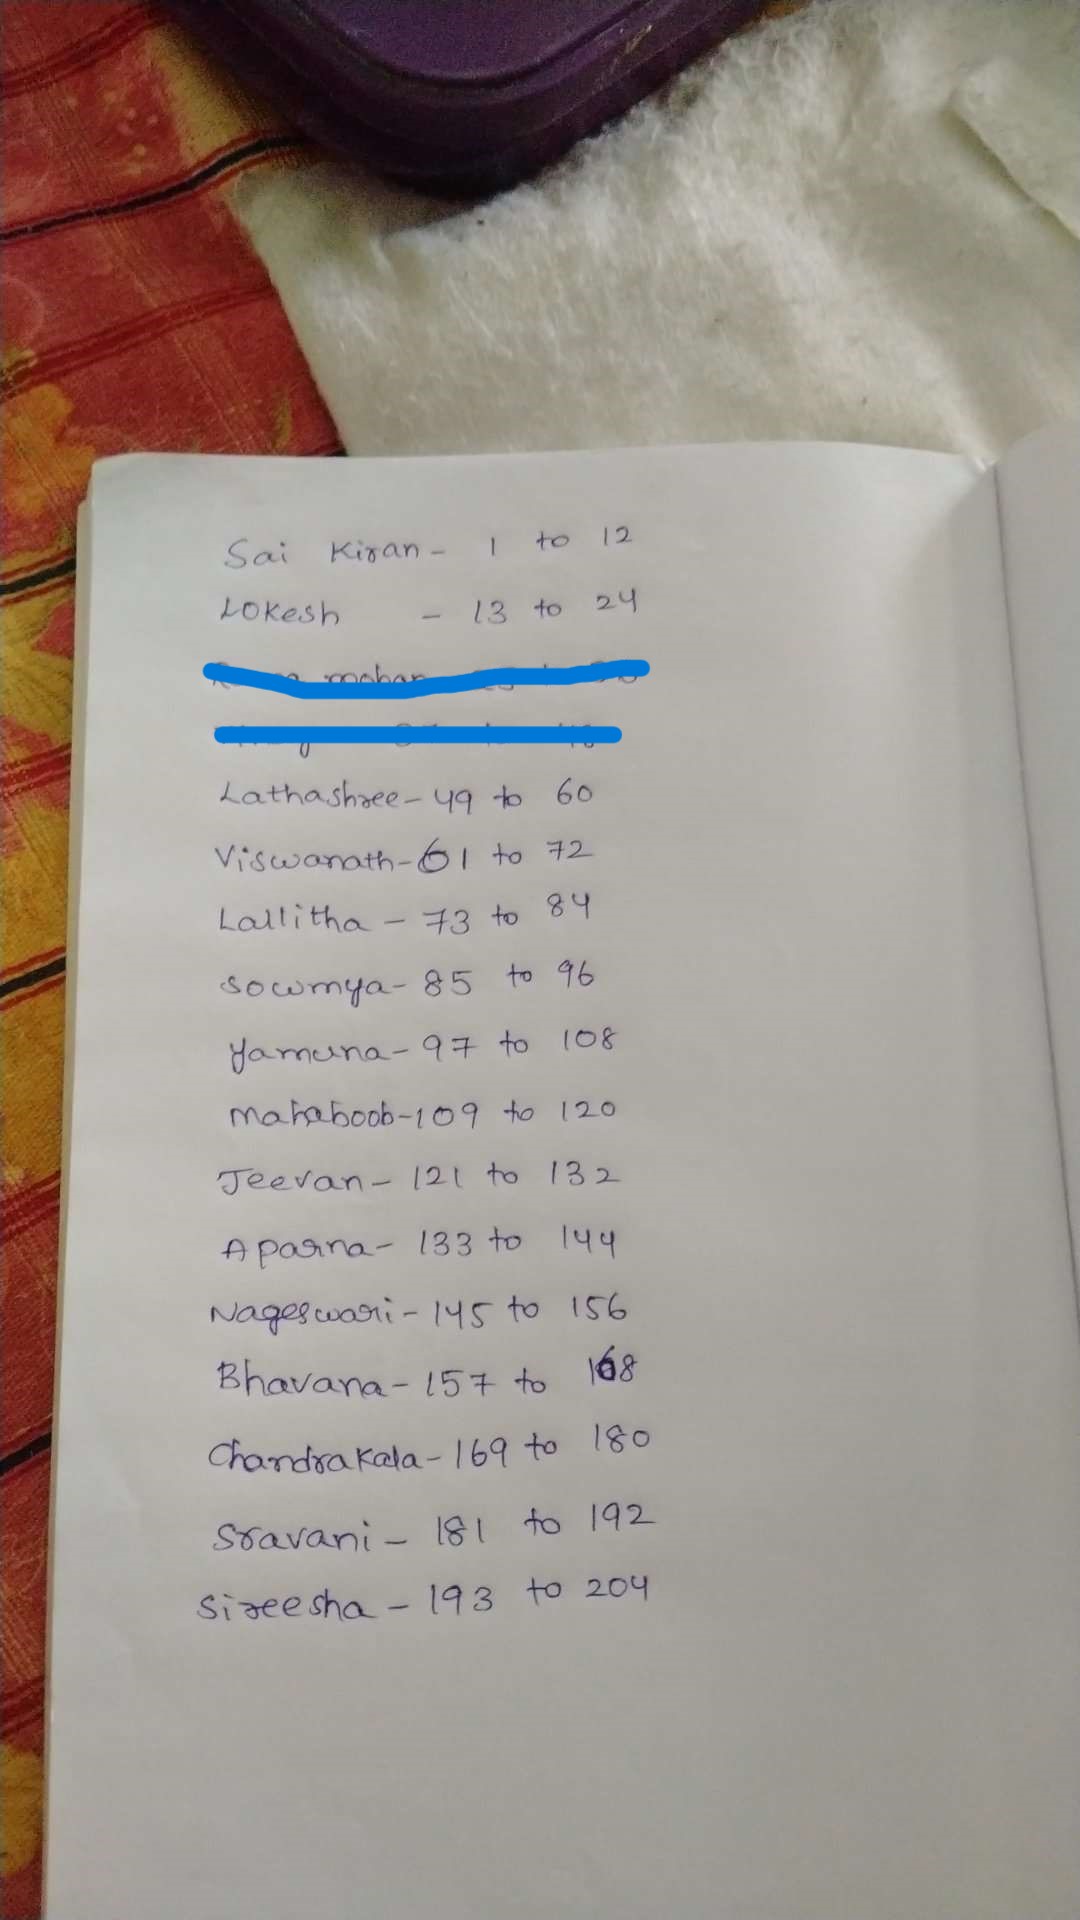 Sai Kiran - 1 to 12
Lokesh - 13 to 24
mohan
Lathashree - 49 to 60
Viswanath - 61 to 72
Lallitha - 73 to 84
Sowmya - 85 to 96
Yamuna - 97 to 108
Mahaboob - 109 to 120
Jeevan - 121 to 132
Aparna - 133 to 144
Nageswari - 145 to 156
Bhavana - 157 to 168
Chandrakala - 169 to 180
Sravani - 181 to 192
Sireesha - 193 to 204